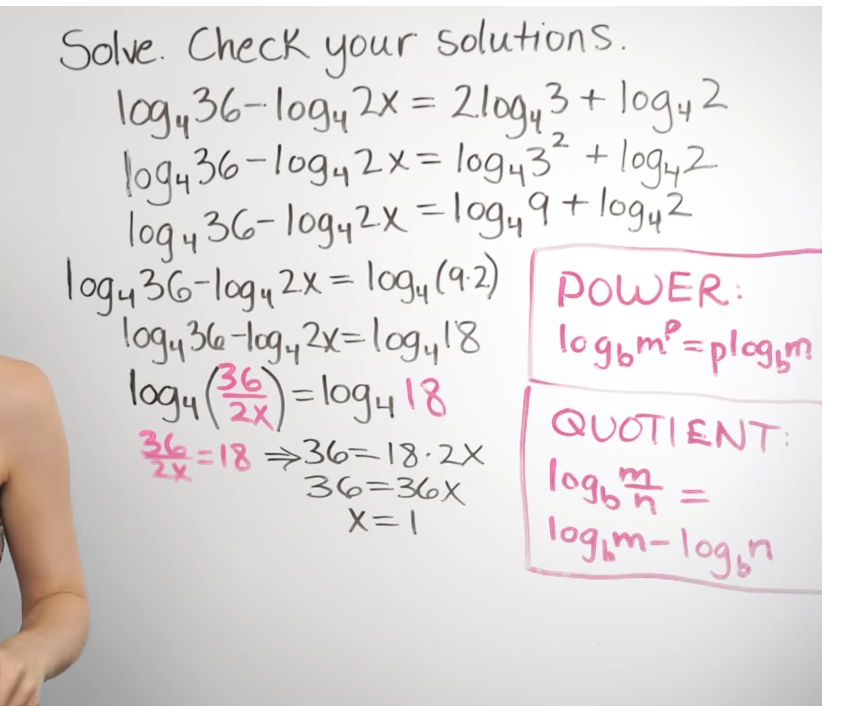 Solve. Check your solutions.
log₄36-log₄2x = 2log₄3 + log₄2
log₄36-log₄2x = log₄3² + log₄2
log₄36-log₄2x = log₄9 + log₄2
log₄36-log₄2x = log₄(9·2)
log₄36-log₄2x=log₄18
log₄(36/2x) = log₄18
36/2x = 18 ⇒ 36=18·2x
36=36x
x=1
POWER:
log_b m^p = plog_b m
QUOTIENT:
log_b m/n =
log_b m - log_b n